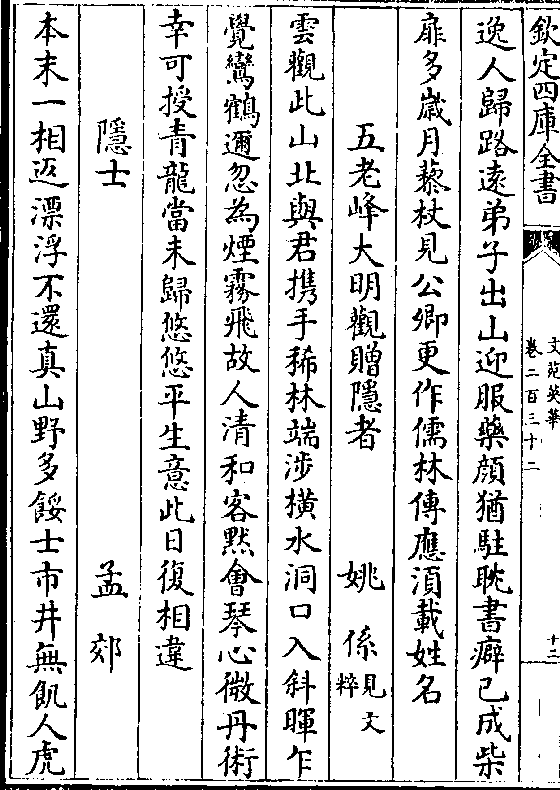 欽定四庫全書
文苑英華
卷二百三十二
十二
逸人歸路遠弟子出山迎服藥顔猶駐耽書癖已成柴
扉多歲月藜杖見公卿更作儒林傳應湏載姓名
五老峰大明觀贈隱者 姚係見文粹
雲觀此山北與君携手稀林端涉横水洞口入斜暉乍
覺鸞鶴邇忽為煙霧飛故人清和客黙會琴心微丹術
幸可授青龍當未歸悠悠平生意此日復相違
隱士 孟郊
本末一相返漂浮不還真山野多餒士市井無飢人虎